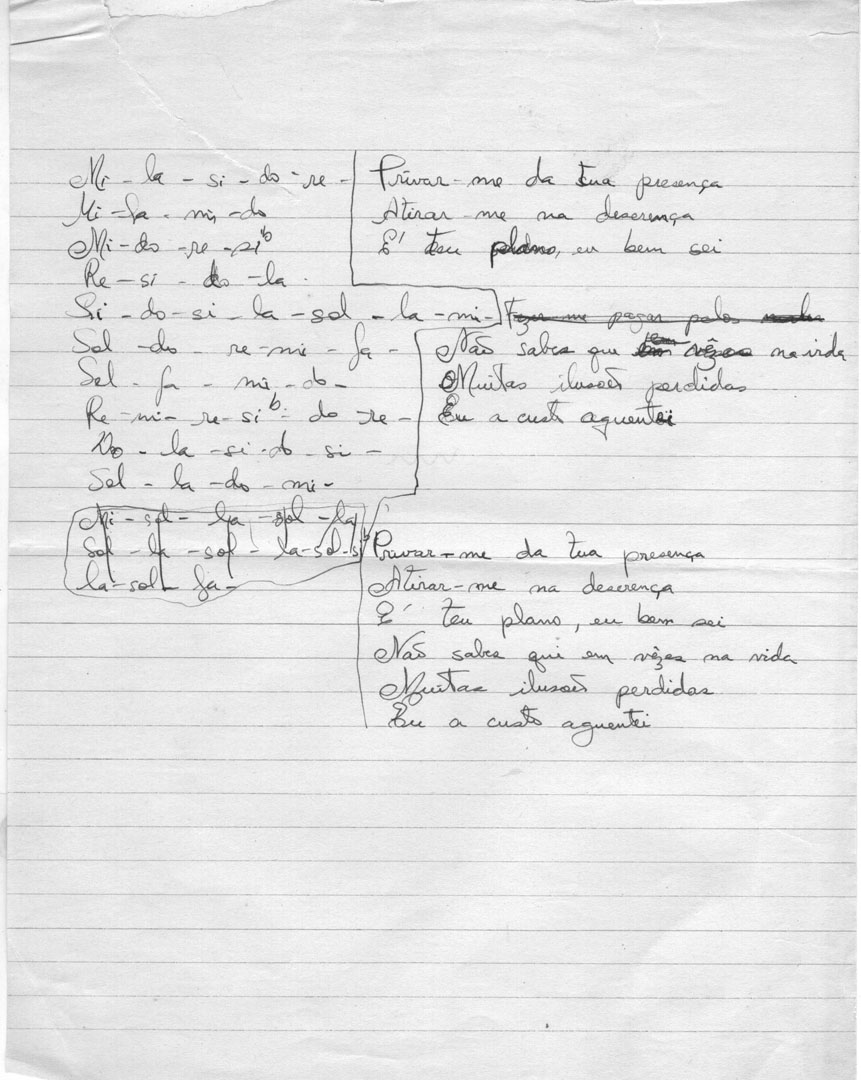 Mi - la - si - do - re - Privar-me da tua presença
Mi - fa - mi - do Atirar-me na descrença
Mi - do - re - si b É teu plano, eu bem sei
Re - si - do - la
Si - do - si - la - sol - la - mi - Fazer-me pagar pelos
Sol - do - re - mi - fa - Não sabes que em vêzes na vida
Sol - fa - mi - do - Muitas ilusões perdidas
Re - mi - re - si b - do - re - Eu a custo aguentei
Do - la - si - do - si -
Sol - la - do - mi -
Mi - sol - la - sol - la
Sol - la - sol - la - sol - si b Privar-me da tua presença
la - sol - fa - Atirar-me na descrença
É teu plano, eu bem sei
Não sabes qui em vêzes na vida
Muitas ilusões perdidas
Eu a custo aguentei